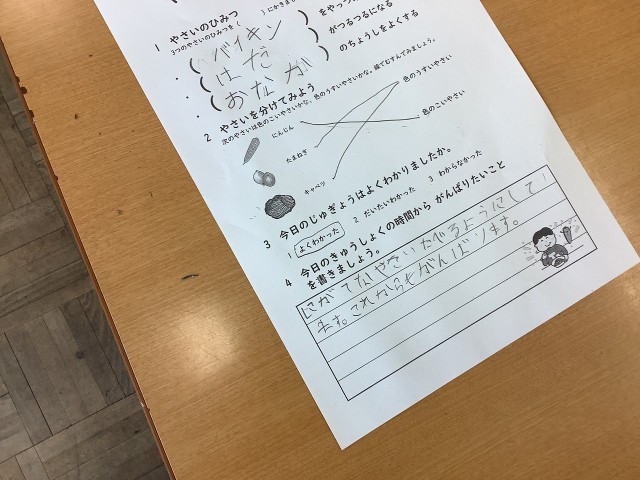 1 やさいのひみつ
3つのやさいのひみつを（ ）にかきまし
（バイキン）をやっつ
（はだ）がつるつるになる
（おなか）のちょうしをよくする
2 やさいを分けてみよう
次のやさいは色のこいやさいかな、色のうすいやさいかな。線でむすんでみましょう。
にんじん
色のうすいやさい
たまねぎ
色のこいやさい
キャベツ
3 今日のじゅぎょうはよくわかりましたか。
1 よくわかった 2 だいたいわかった 3 わからなかった
4 今日のきゅうしょくの時間から がんばりたいこと
を書きましょう。
にがてなやさいたべるようにして
ます。これからもがんばります。